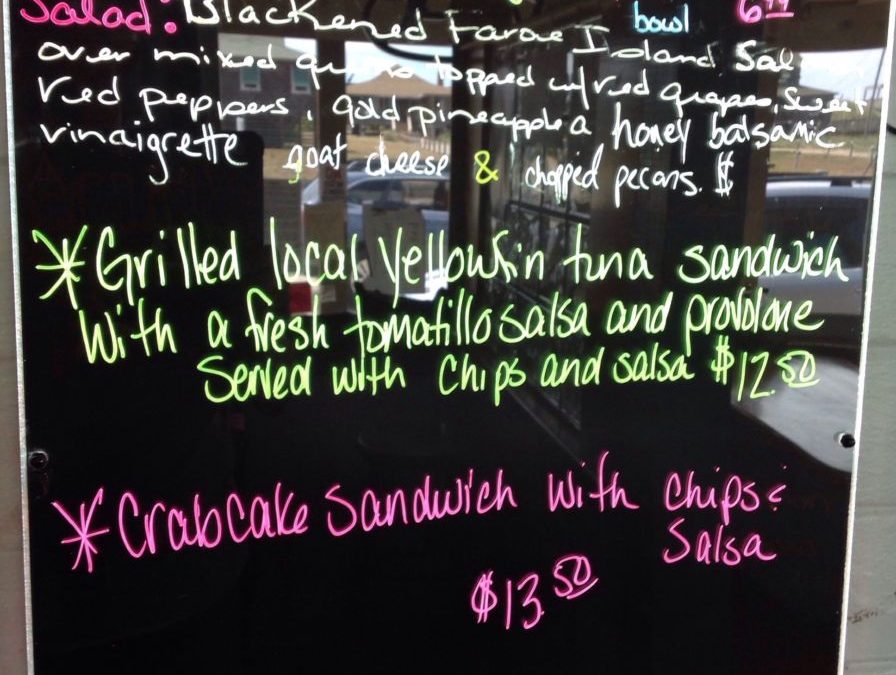 bowl 6.99
Salad: Blackened Faroe Island
over mixed topped w/red grapes, sweet
red peppers, gold pineapple a honey balsamic
vinaigrette goat cheese & chopped pecans. $
*Grilled local yellowfin tuna sandwich
With a fresh tomatillo salsa and provolone
Served with chips and salsa $12.50
*Crabcake Sandwich with chips &
Salsa
$13.50